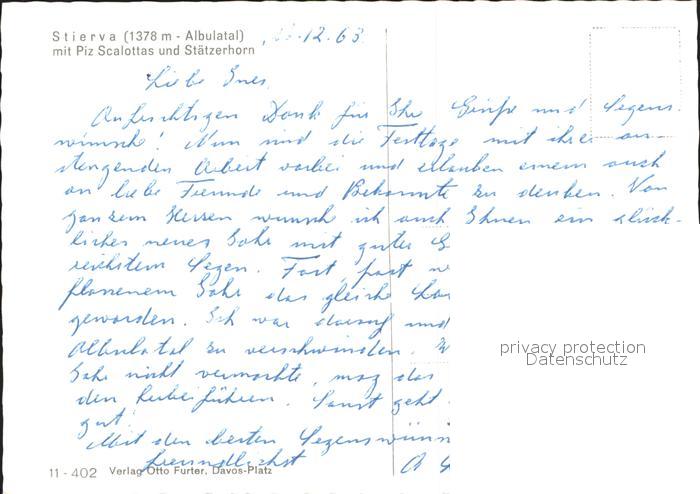 Stierva (1378 m - Albulatal)
mit Piz Scalottas und Stätzerhorn
.12.63
Liebe
Aufrichtigen Dank für Ihre Grüße und Segens-
wünsche! Nun sind die Festtage mit ihrer an-
stengenden Arbeit vorbei und erlauben einem auch
an liebe Freunde und Bekannte zu denken. Von
ganzem Herzen wünsche ich auch Ihnen ein glück-
liches neues Jahr mit guter G
reichstem Segen. Fast, fast
flossenem Jahr das gleiche
geworden. Ich war darauf und
Albulatal zu verschwinden.
Jahr nicht vermochte, mag das
den herbeiführen. Sonst geht
gut!
Mit den besten Segenswün
freundlichst
privacy protection
Datenschutz
11-402 Verlag Otto Furter, Davos-Platz